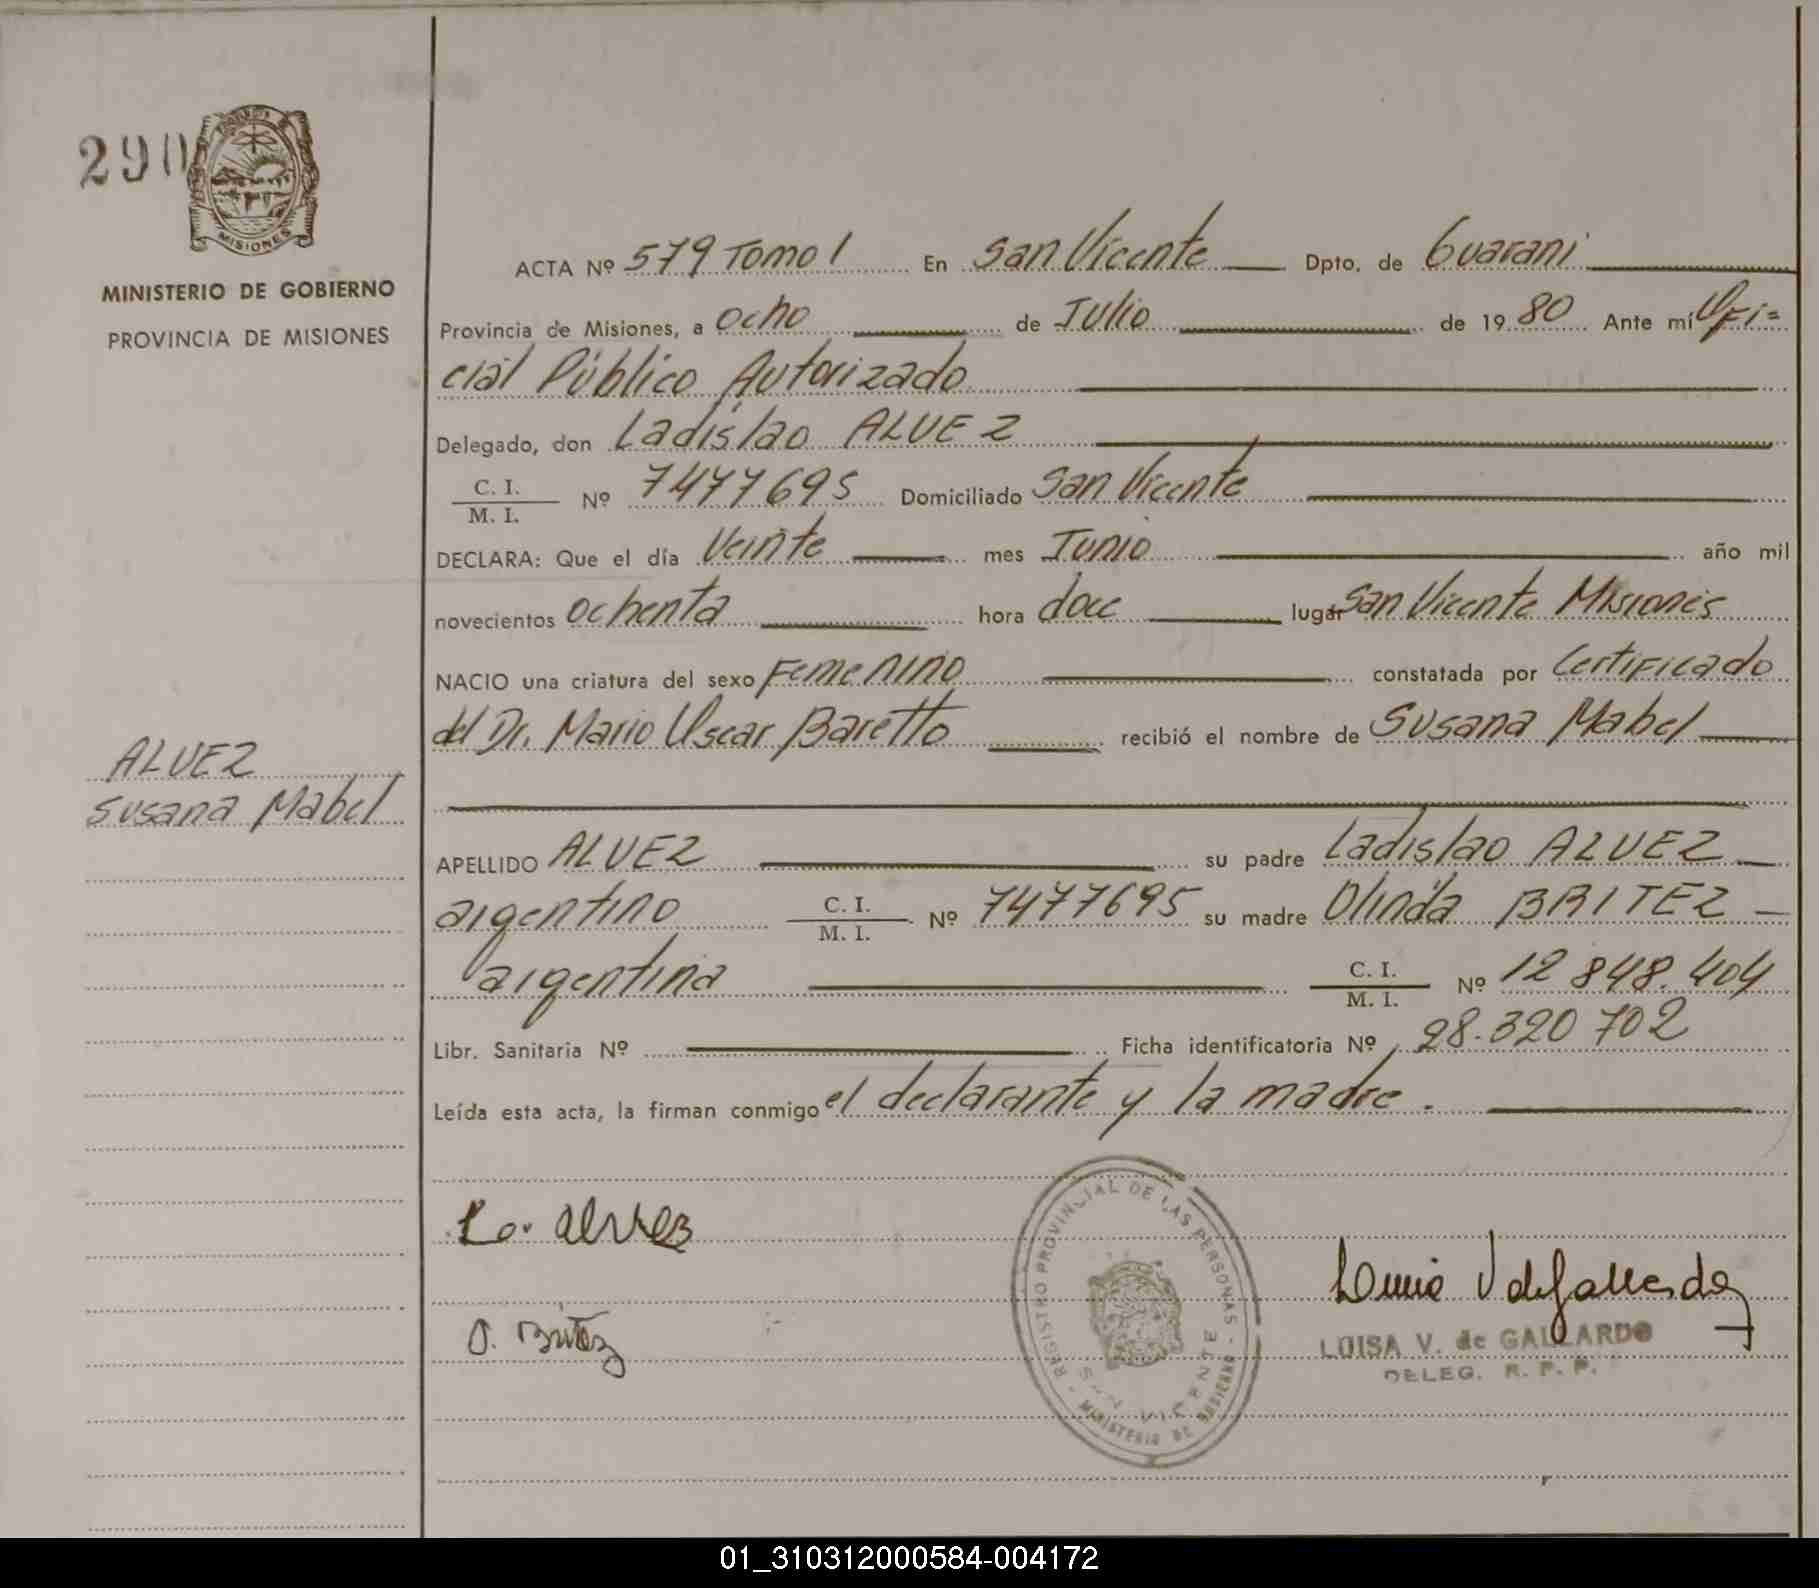 290
MISIONES
MINISTERIO DE GOBIERNO
PROVINCIA DE MISIONES
ALVEZ
Susana Mabel
ACTA Nº 579 Tomo 1 En San Vicente Dpto. de Guarani
Provincia de Misiones, a ocho de Julio de 1980 Ante mí Ofi=
cial Público Autorizado
Delegado, don Ladislao ALVEZ
C. I.
M. I. Nº 7477695 Domiciliado San Vicente
DECLARA: Que el día Veinte mes Junio año mil
novecientos ochenta hora doce lugar San Vicente Misiones
NACIO una criatura del sexo Femenino constatada por Certificado
del Dr. Mario Oscar Baretto recibió el nombre de Susana Mabel
APELLIDO ALVEZ su padre Ladislao ALVEZ
argentino C. I. M. I. Nº 7477695 su madre Olinda BRITEZ
argentina C. I. M. I. Nº 12 848.404
Libr. Sanitaria Nº Ficha identificatoria Nº 28.320 702
Leída esta acta, la firman conmigo el declarante y la madre.
La. alvez
O. Britez
REGISTRO PROVINCIAL DE LAS PERSONAS - MINISTERIO DE GOBIERNO -
SAN VICENTE
Luisa V de Gallardo
LUISA V. de GALLARDO
DELEG. R. P. P.
01_310312000584-004172